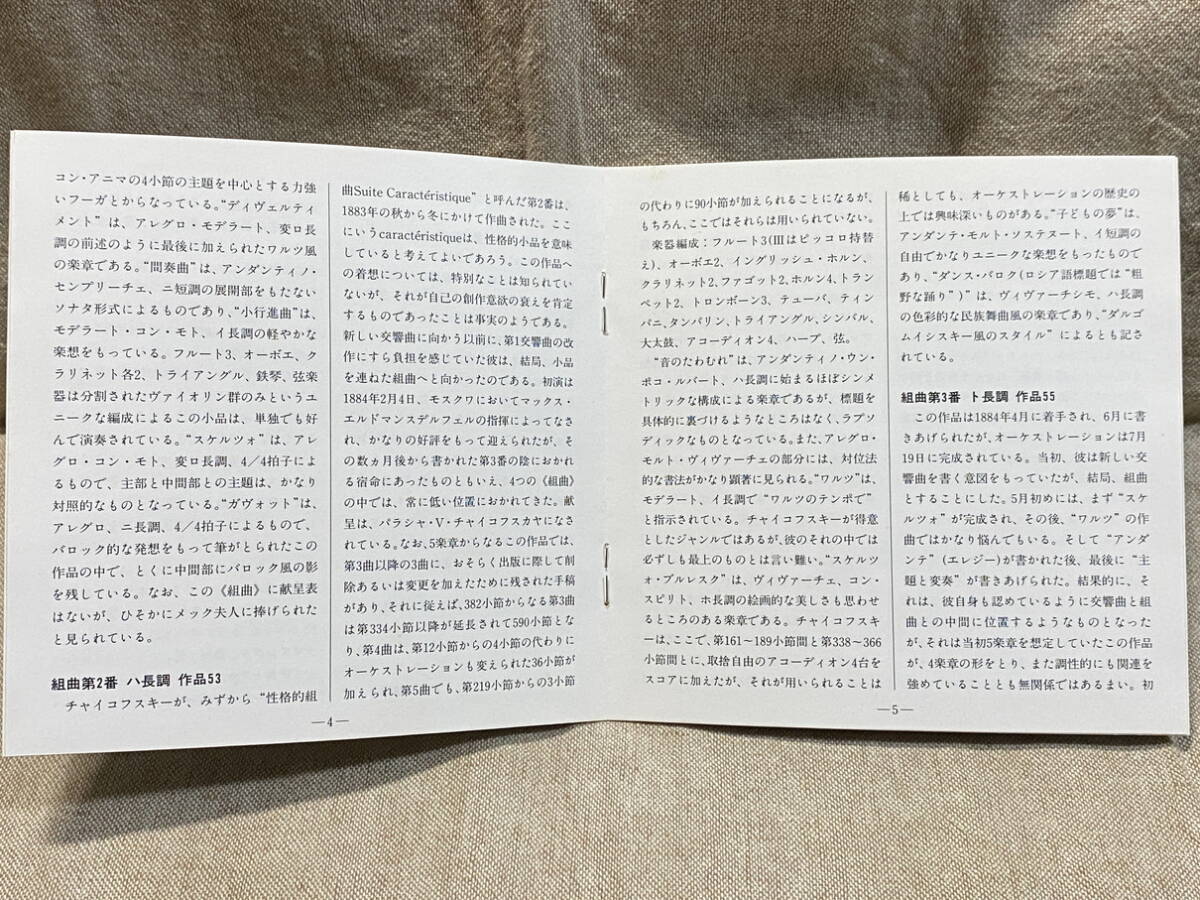 コン・アニマの4小節の主題を中心とする力強
いフーガとからなっている。“ディヴェルティ
メント”は、アレグロ・モデラート、変ロ長
調の前述のように最後に加えられたワルツ風
の楽章である。“間奏曲”は、アンダンティノ・
センプリーチェ、ニ短調の展開部をもたない
ソナタ形式によるものであり、“小行進曲”は、
モデラート・コン・モト、イ長調の軽やかな
楽想をもっている。フルート3、オーボエ、ク
ラリネット各2、トライアングル、鉄琴、弦楽
器は分割されたヴァイオリン群のみというユ
ニークな編成によるこの小品は、単独でも好
んで演奏されている。“スケルツォ”は、アレ
グロ・コン・モト、変ロ長調、4/4拍子によ
るもので、主部と中間部との主題は、かなり
対照的なものとなっている。“ガヴォット”は、
アレグロ、ニ長調、4/4拍子によるもので、
バロック的な発想をもって筆がとられたこの
作品の中で、とくに中間部にバロック風の影
を残している。なお、この《組曲》に献呈表
はないが、ひそかにメック夫人に捧げられた
と見られている。
組曲第2番 ハ長調 作品53
チャイコフスキーが、みずから“性格的組
曲Suite Caractéristique”と呼んだ第2番は、
1883年の秋から冬にかけて作曲された。ここ
にいうcaractéristiqueは、性格的小品を意味
していると考えてよいであろう。この作品へ
の着想については、特別なことは知られてい
ないが、それが自己の創作意欲の衰えを肯定
するものであったことは事実のようである。
新しい交響曲に向かう以前に、第1交響曲の改
作にすら負担を感じていた彼は、結局、小品
を連ねた組曲へと向かったのである。初演は
1884年2月4日、モスクワにおいてマックス・
エルドマンスデルフェルの指揮によってなさ
れ、かなりの好評をもって迎えられたが、そ
の数ヵ月後から書かれた第3番の陰におかれ
る宿命にあったものともいえ、4つの《組曲》
の中では、常に低い位置におかれてきた。献
呈は、パラシャ・V・チャイコフスカヤになさ
れている。なお、5楽章からなるこの作品では、
第3曲以降の3曲に、おそらく出版に際して削
除あるいは変更を加えたために残された手稿
があり、それに従えば、382小節からなる第3曲
は第334小節以降が延長されて590小節とな
り、第4曲は、第12小節からの4小節の代わりに
オーケストレーションも変えられた36小節が
加えられ、第5曲でも、第219小節からの3小節
—4—
の代わりに90小節が加えられることになるが、
もちろん、ここではそれらは用いられていない。
楽器編成：フルート3(Ⅲはピッコロ持替
え)、オーボエ2、イングリッシュ・ホルン、
クラリネット2、ファゴット2、ホルン4、トラン
ペット2、トロンボーン3、テューバ、ティン
パニ、タンバリン、トライアングル、シンバル、
大太鼓、アコーディオン4、ハープ、弦。
“音のたわむれ”は、アンダンティノ・ウン・
ポコ・ルバート、ハ長調に始まるほぼシンメ
トリックな構成による楽章であるが、標題を
具体的に裏づけるようなところはなく、ラプソ
ディックなものとなっている。また、アレグロ・
モルト・ヴィヴァーチェの部分には、対位法
的な書法がかなり顕著に見られる。“ワルツ”は、
モデラート、イ長調で“ワルツのテンポで”
と指示されている。チャイコフスキーが得意
としたジャンルではあるが、彼のそれの中では
必ずしも最上のものとは言い難い。“スケルツ
ォ・ブルレスク”は、ヴィヴァーチェ、コン・
スピリト、ホ長調の絵画的な美しさも思わせ
るところのある楽章である。チャイコフスキ
ーは、ここで、第161〜189小節間と第338〜366
小節間とに、取捨自由のアコーディオン4台を
スコアに加えたが、それが用いられることは
稀としても、オーケストレーションの歴史の
上では興味深いものがある。“子どもの夢”は、
アンダンテ・モルト・ソステヌート、イ短調の
自由でかなりユニークな楽想をもったもので
あり、“ダンス・バロク(ロシア語標題では“粗
野な踊り”)”は、ヴィヴァーチシモ、ハ長調
の色彩的な民族舞曲風の楽章であり、“ダルゴ
ムイシスキー風のスタイル”によるとも記さ
れている。
組曲第3番 ト長調 作品55
この作品は1884年4月に着手され、6月に書
きあげられたが、オーケストレーションは7月
19日に完成されている。当初、彼は新しい交
響曲を書く意図をもっていたが、結局、組曲
とすることにした。5月初めには、まず“スケ
ルツォ”が完成され、その後、“ワルツ”の作
曲ではかなり悩んでもいる。そして“アンダ
ンテ”(エレジー)が書かれた後、最後に“主
題と変奏”が書きあげられた。結果的に、そ
れは、彼自身も認めているように交響曲と組
曲との中間に位置するようなものとなった
が、それは当初5楽章を想定していたこの作品
が、4楽章の形をとり、また調性的にも関連を
強めていることとも無関係ではあるまい。初
—5—